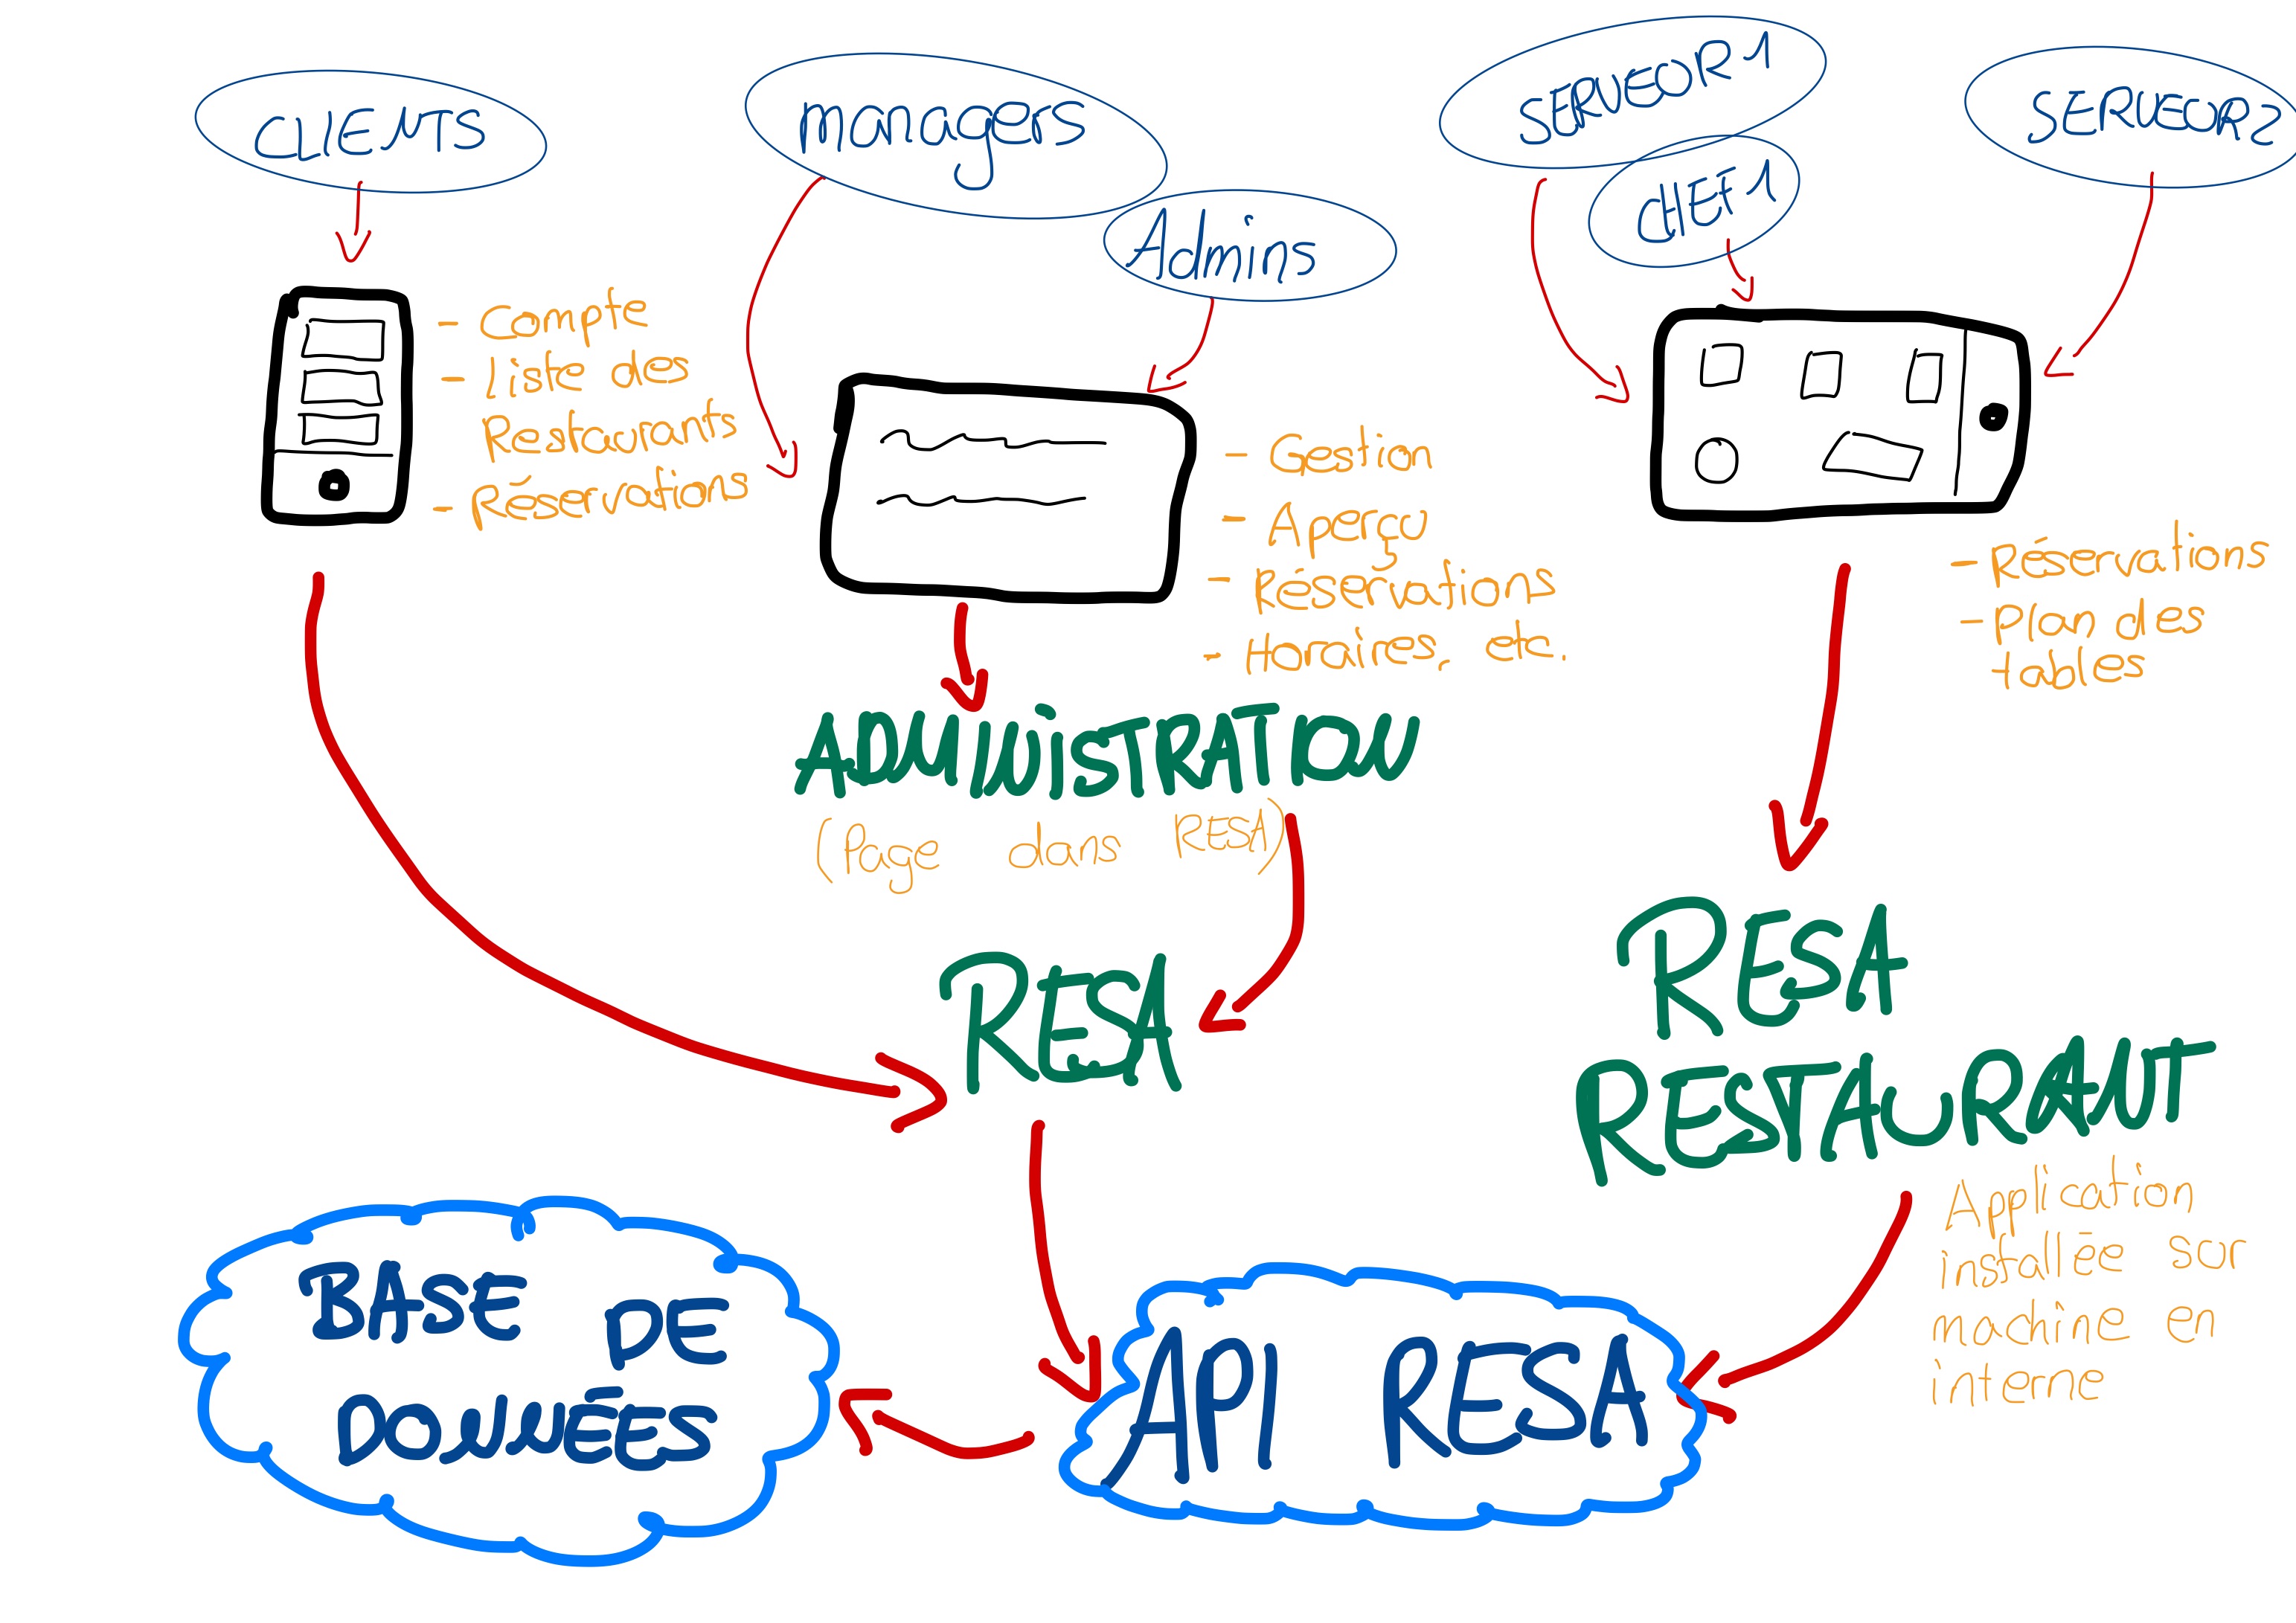 CLIENTS
managers
Admins
SERVEUR 1
CHEF 1
SERVEUR 2
- Compte
- liste des
Restaurants
- Réservations
- Gestion
- Aperçu
- Réservations
- Horaires, etc.
- Réservations
- Plan des
tables
ADMINISTRATION
(Page dans RESA)
RESA
RESA
RESTAURANT
Application
installée sur
machine en
interne
BASE DE
DONNÉES
API RESA